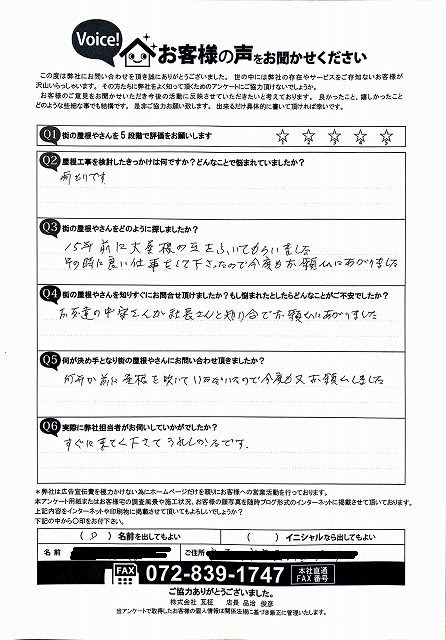 Voice!
お客様の声をお聞かせください
この度は弊社にお問い合わせを頂き誠にありがとうございました。 世の中には弊社の存在やサービスをご存知ないお客様が
沢山いらっしゃいます。 その方たちに弊社をよく知って頂くためのアンケートにご協力頂けないでしょうか。
お客様のご意見をお聞かせいただき今後の活動に反映させていただきたいと考えております。 良かったこと、嬉しかったこと
どのような些細な事でも結構です。 是非ご協力お願い致します。 出来るだけ具体的に書いて頂ければ幸いです。
Q1 街の屋根やさんを5段階で評価をお願いします
Q2 屋根工事を検討したきっかけは何ですか？どんなことで悩まれていましたか？
雨もりです
Q3 街の屋根やさんをどのように探しましたか？
15年前に大屋根の瓦をふいてもらいました
その時に良い仕事をして下さったので今度もお願いにあがりました
Q4 街の屋根やさんを知りすぐにお問合せ頂けましたか？もし悩まれたとしたらどんなことがご不安でしたか？
お友達の さんが社長さんと知り合でお願いにあがりました
Q5 何が決め手となり街の屋根やさんにお問い合わせ頂きましたか？
何年か前に屋根を吹いて いるので今度も又お願いしました
Q6 実際に弊社担当者がお伺いしていかがでしたか？
すぐに来てく下さてうれしかったです。
＊弊社は広告宣伝費を極力かけない為にホームページだけを頼りにお客様への営業活動を行っております。
本アンケート用紙またはお客様宅の調査風景や施工状況、お客様の顔写真を随時ブログ形式のインターネットに掲載させて頂いております。
上記内容をインターネットや印刷物に掲載させて頂いてもよろしいでしょうか？
下記の中から〇印をお付下さい。
（ 〇 ） 名前を出してもよい （ ） イニシャルなら出してもよい
名 前 ご住所
FAX 072-839-1747 本社直通 FAX番号
ご協力ありがとうございました。
株式会社 瓦柾 店長 品治 俊彦
当アンケートで取得したお客様の個人情報は関係法規に基づき厳正に管理いたします。